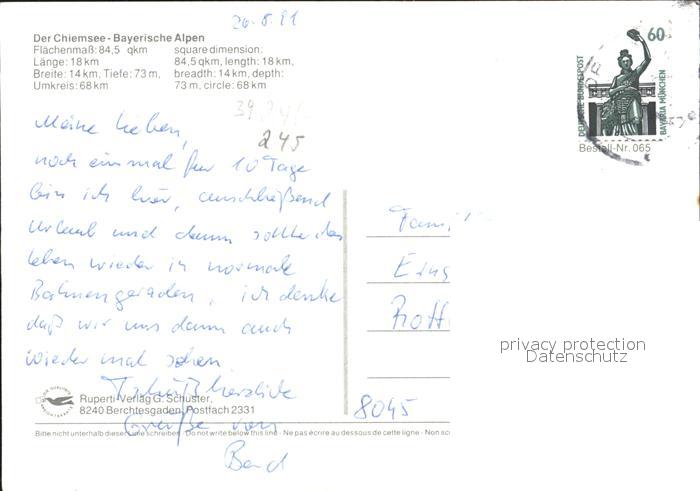 Der Chiemsee - Bayerische Alpen
Flächenmaß: 84,5 qkm square dimension:
Länge: 18 km 84,5 qkm, length: 18 km,
Breite: 14 km, Tiefe: 73 m, breadth: 14 km, depth:
Umkreis: 68 km 73 m, circle: 68 km
26.8.91
60
DEUTSCHE BUNDESPOST
BAVARIA MÜNCHEN
Bestell-Nr. 065
245
Meine Lieben,
noch einmal für 10 Tage
bin ich hier, anschließend
Urlaub und dann sollte das
Leben wieder in normale
Bahnen geraden, ich denke
daß wir uns dann auch
wieder mal sehen.
herzliche
Grüße von
Bernd
Fami
Eing
8045
privacy protection
Datenschutz
Ruperti-Verlag G. Schuster,
8240 Berchtesgaden, Postfach 2331
Bitte nicht unterhalb dieser Linie schreiben - Do not write below this line - Ne pas écrire au dessous de cette ligne - Non sc